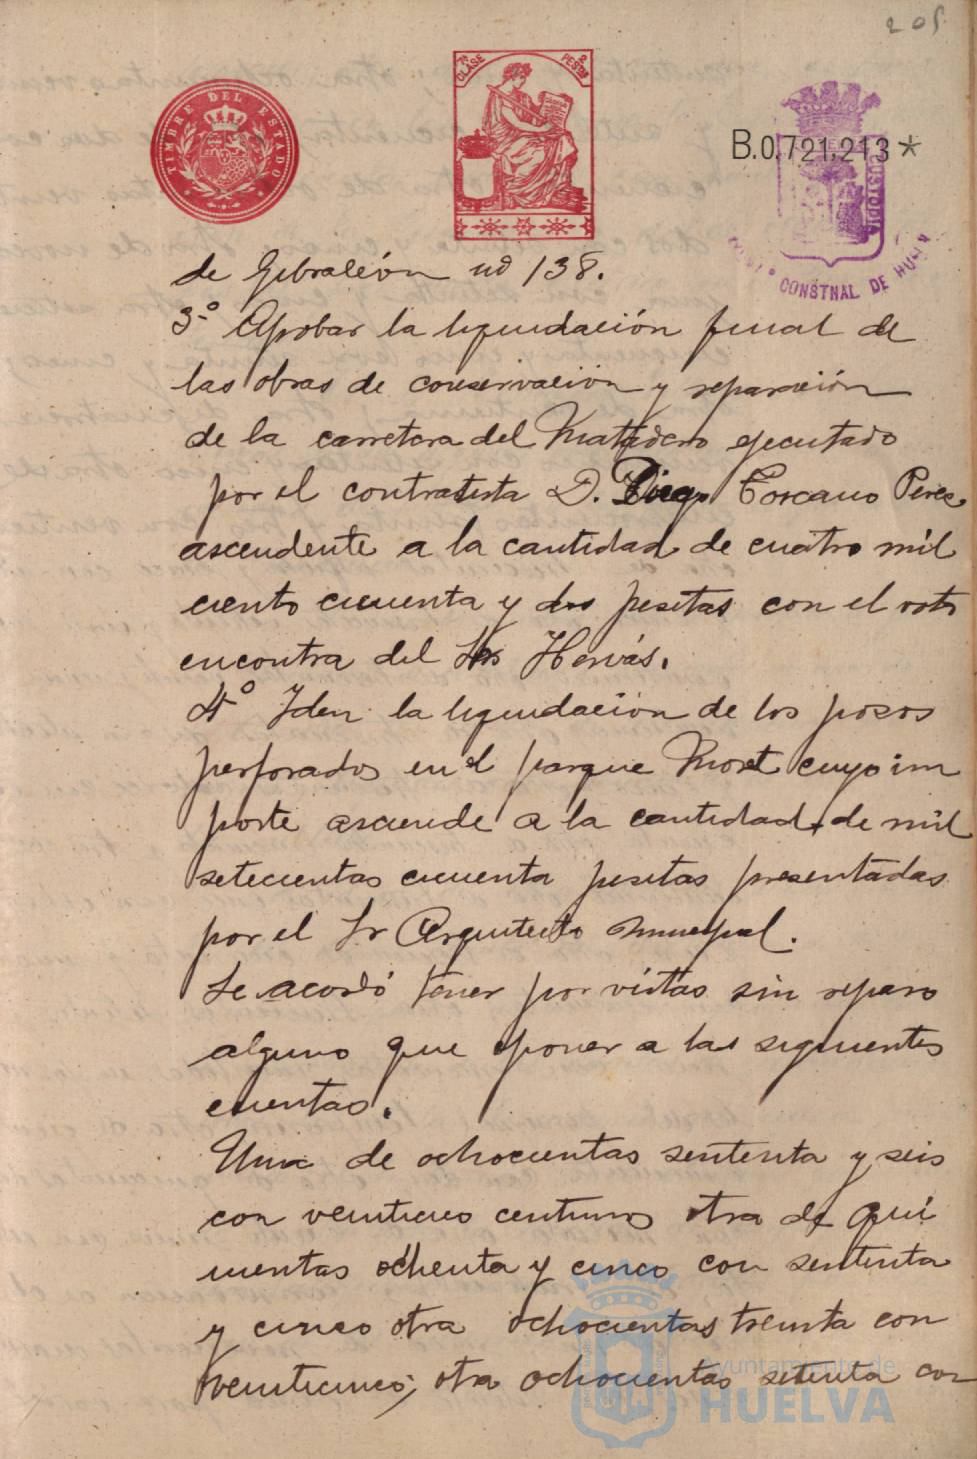 205
TIMBRE DEL ESTADO
7ª CLASE 2 PESTAS
B.0,721,213*
CUSTODIA
CONSTNAL DE HUELVA
de Gibraleón nº 138.
3º Aprobar la liquidación final de
las obras de conservación y reparación
de la carretera del Matadero ejecutado
por el contratista D. Diego Toscano Perez
ascendente a la cantidad de cuatro mil
ciento cicuenta y dos pesetas con el voto
encontra del Sr Hervás.
4º Iden la liquidación de los posos
perforados en el parque Moret cuyo im
porte asciende a la cantidad de mil
setecientas cicuenta pesetas presentadas
por el Sr Arquitecto municipal.
Se acordó tener por vistas sin reparo
alguno que oponer a las siguientes
cuentas.
Una de ochocientas sententa y seis
con veinticico centimos otra de qui
nientas ochenta y cinco con sententa
y cinco otra ochocientas treinta con
veinticinco; otra ochocientas setenta con
Ayuntamiento de
HUELVA